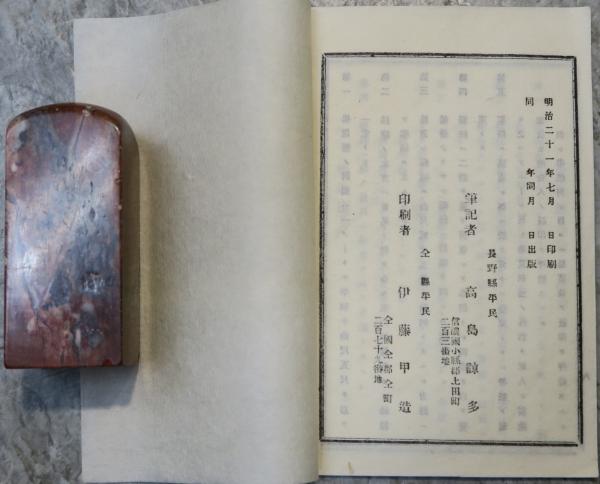 明治二十一年七月　日印刷
同　年同月　日出版
長野縣平民
筆記者　高島諒多
信濃國小縣郡上田町
二百三番地
仝縣平民
印刷者　伊藤甲造
仝國仝郡仝町
二百七十 番地